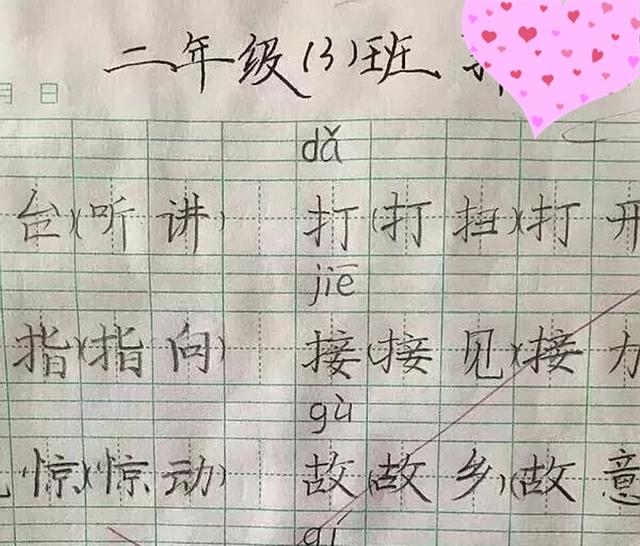 二年级(3)班
月 日
dǎ
台)(听讲) 打(打扫)(打开
jiē
指)(指向) 接(接见)(接力
gù
惊)(惊动) 故(故乡)(故意